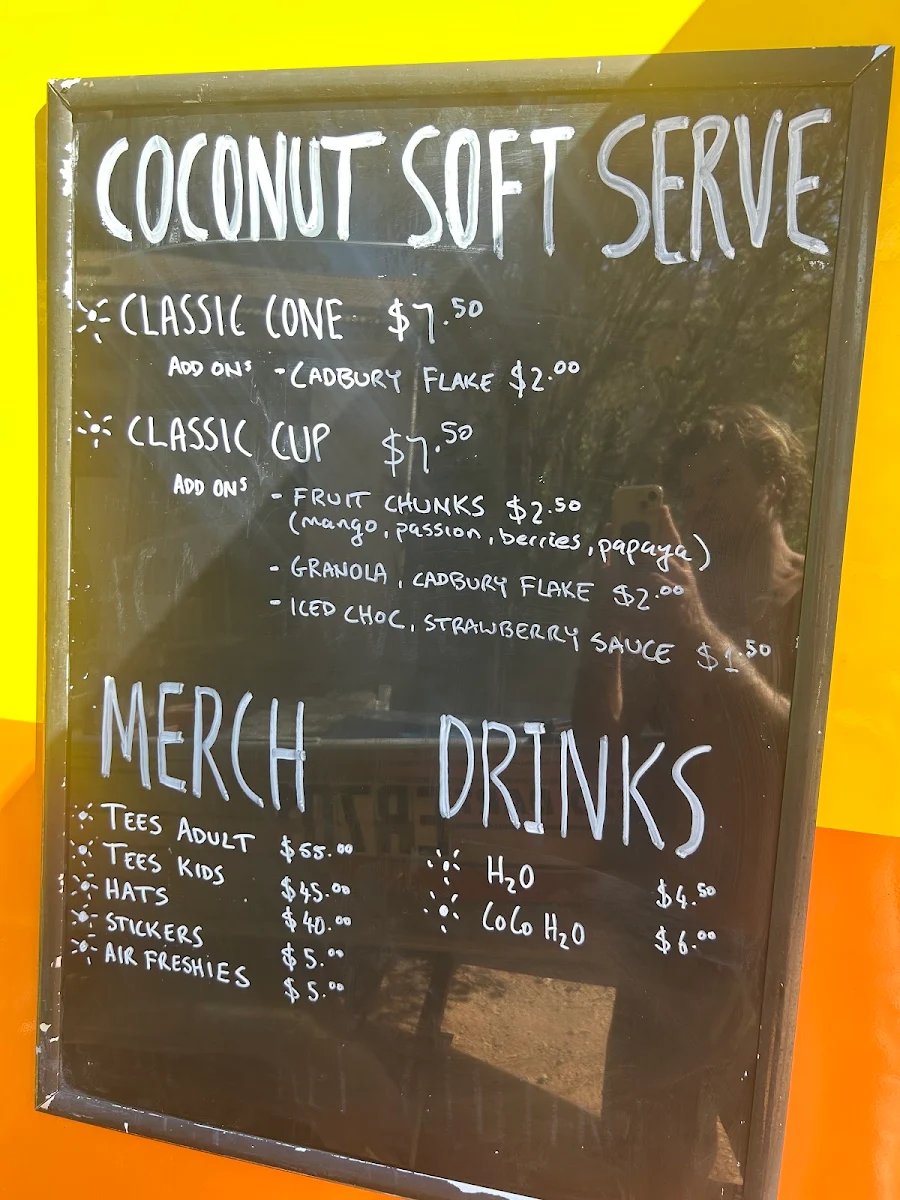 COCONUT SOFT SERVE
CLASSIC CONE $7.50
ADD ONS - CADBURY FLAKE $2.00
CLASSIC CUP $7.50
ADD ONS - FRUIT CHUNKS $2.50
(mango, passion, berries, papaya)
- GRANOLA, CADBURY FLAKE $2.00
- ICED CHOC, STRAWBERRY SAUCE $1.50
MERCH
TEES ADULT $55.00
TEES KIDS $45.00
HATS $40.00
STICKERS $5.00
AIR FRESHIES $5.00
DRINKS
H2O $4.50
COCO H2O $6.00